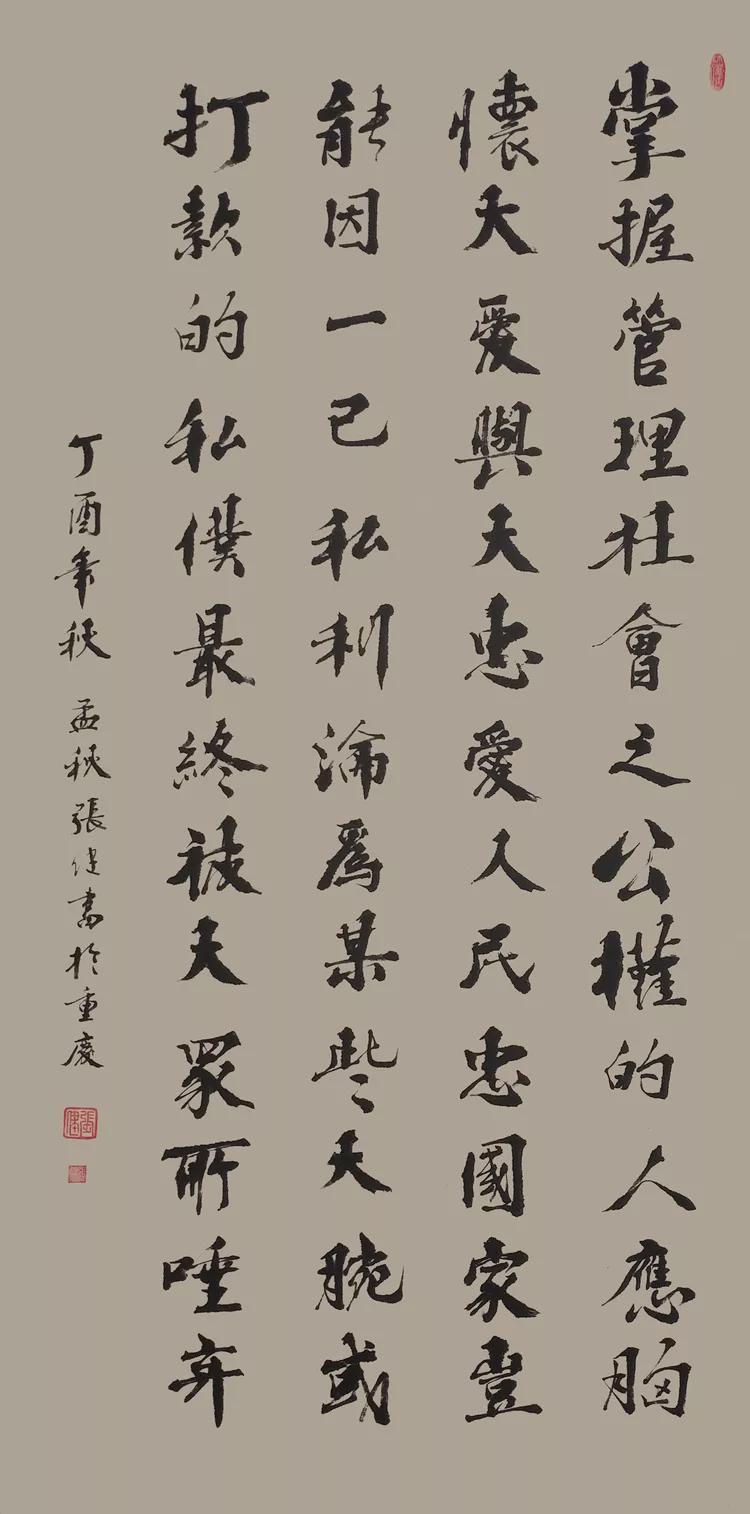 掌握管理社會之公權的人應胸
懷天愛與天忠愛人民忠國家豈
能因一己私利淪爲某些天腕或
打款的私僕最終被天眾所唾弃
丁酉年秋 孟秋張健書於重慶